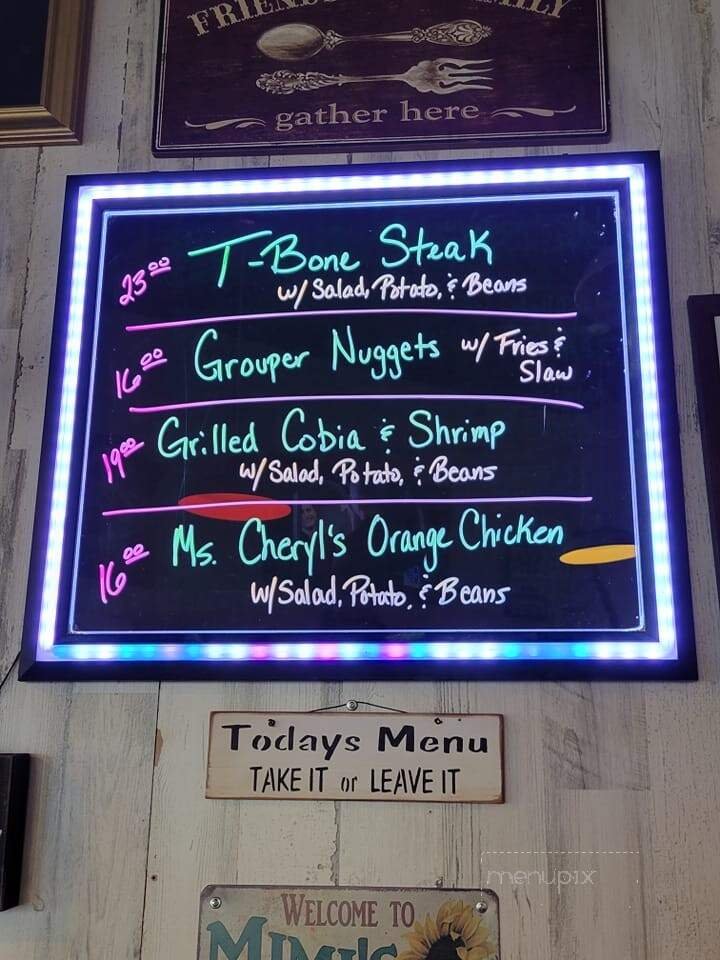 FRIENDS
gather here
23⁰⁰ T-Bone Steak
w/ Salad, Potato, & Beans
16⁰⁰ Grouper Nuggets w/ Fries &
Slaw
19⁰⁰ Grilled Cobia & Shrimp
w/ Salad, Potato, & Beans
16⁰⁰ Ms. Cheryl's Orange Chicken
w/ Salad, Potato, & Beans
Todays Menu
TAKE IT or LEAVE IT
menupix
WELCOME TO
MIMI'S